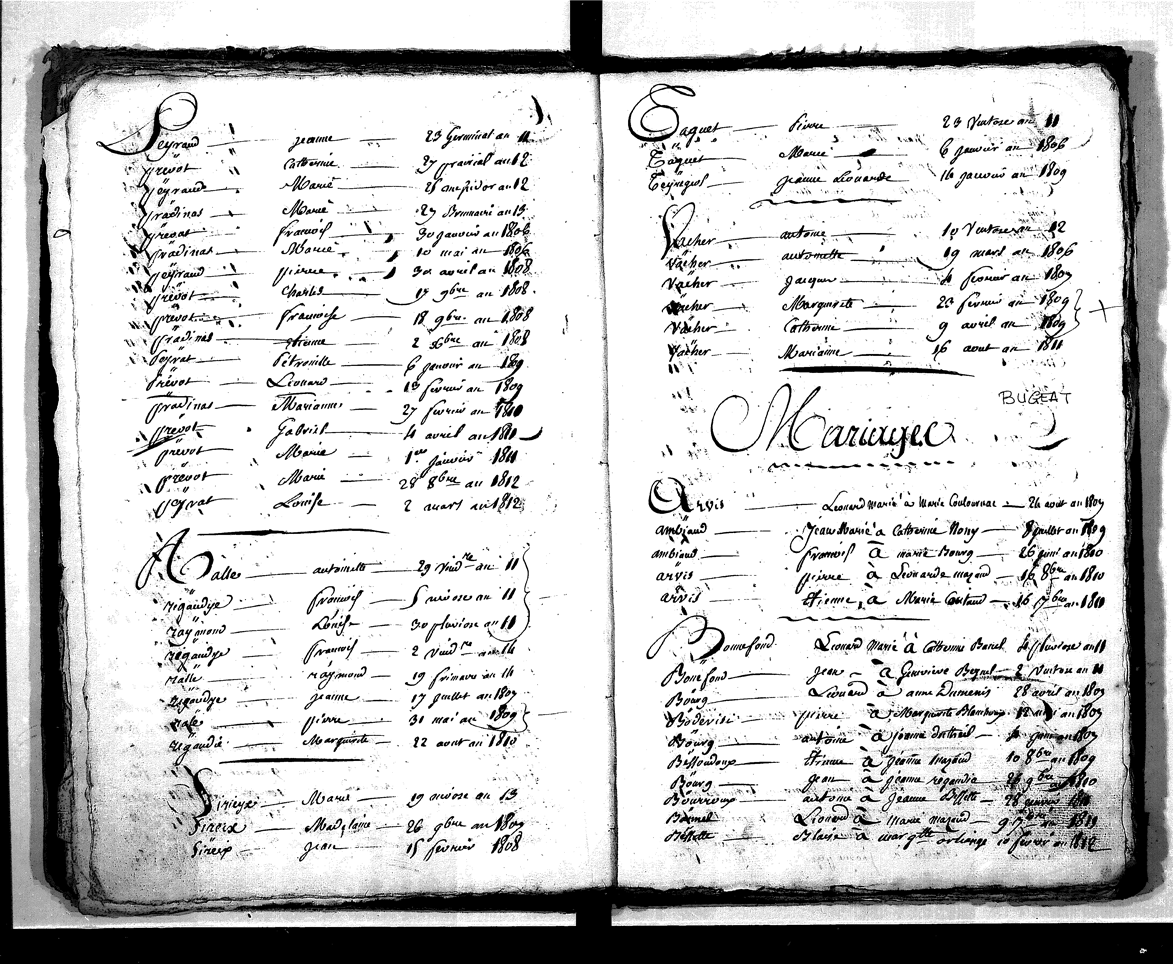 Peyraud jeanne 23 Germinal an 11
prévot Catherine 27 prairial an 12
peyraud Marie 25 an 12
pradinas Marie 27 Brumaire an 13
prévot françois 30 janvier an 1806
pradinas Marie 10 mai an 1806
peyraud pierre 30 avril an 1808
prévot Charles 17 9bre an 1808
prévot françoise 18 9bre an 1808
pradinas étienne 2 an 1808
peyrat Pétronille 6 janvier an 1809
prévot Léonard 18 février an 1809
pradinas Marianne 27 février an 1810
prévot Gabriel 4 avril an 1810
prévot Marie 1er janvier 1811
prévot Marie 28 8bre an 1812
peyrat Louise 2 mars an 1812
Ralle antoinette 29 Vindre an 11
rigaudye françois 5 nivose an 11
raymond Louise 30 pluviose an 11
rigaudye françois 2 Vindre an 14
ralle raymond 19 frimaire an 14
rigaudye jeanne 17 juillet an 1807
rale pierre 31 mai an 1809
rigaudie Marguerite 22 aout an 1810
Sirieix Marie 19 nivose an 13
Sireix Madelaine 26 9bre an 1807
Sireix jean 15 février 1808
Taquet Pierre 23 Ventose an 11
Taquet Marie 6 janvier an 1806
Teyssejol jeanne Léonarde 16 janvier an 1809
Vacher antoine 10 Ventose an 12
Vacher antoinette 19 mars an 1806
Vacher Jacques 4 février an 1807
Vacher Marguerite 23 février an 1809
Vacher Catherine 9 avril an 1809
Vacher Marianne 16 aout an 1811
BUGEAT
Mariages
Arvis Léonard Marie à Marie 24 aout an 1807
ambiaud Jean Marie à Catherine Nony 8 juillet an 1809
ambiaud françois à marie Bourg 26 juin an 1810
arvis pierre à Léonarde mazaud 16 8bre an 1810
arvis Etienne à Marie 16 7bre an 1811
Bonnefond Léonard Marie à Catherine 4 pluviose an 11
Bonefond jean à Geneviève 2 Ventose an 11
Bourg Léonard à anne Dumenis 28 avril an 1807
pierre à Marguerite 12 mai an 1807
Bourg antoine à jeanne juin an 1807
Bessoudoux Etienne à jeanne mazaud 10 8bre an 1809
Bourg jean à jeanne rigaudie 26 9bre an 1810
Bourroux antoine à Jeanne 28 janvier
Léonard à marie mazaud 9 7bre an 1811
Blaise à Margtte orliange 10 février an 1812